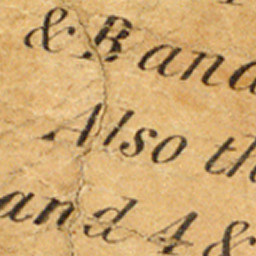 & B and
Also th
and 4 &